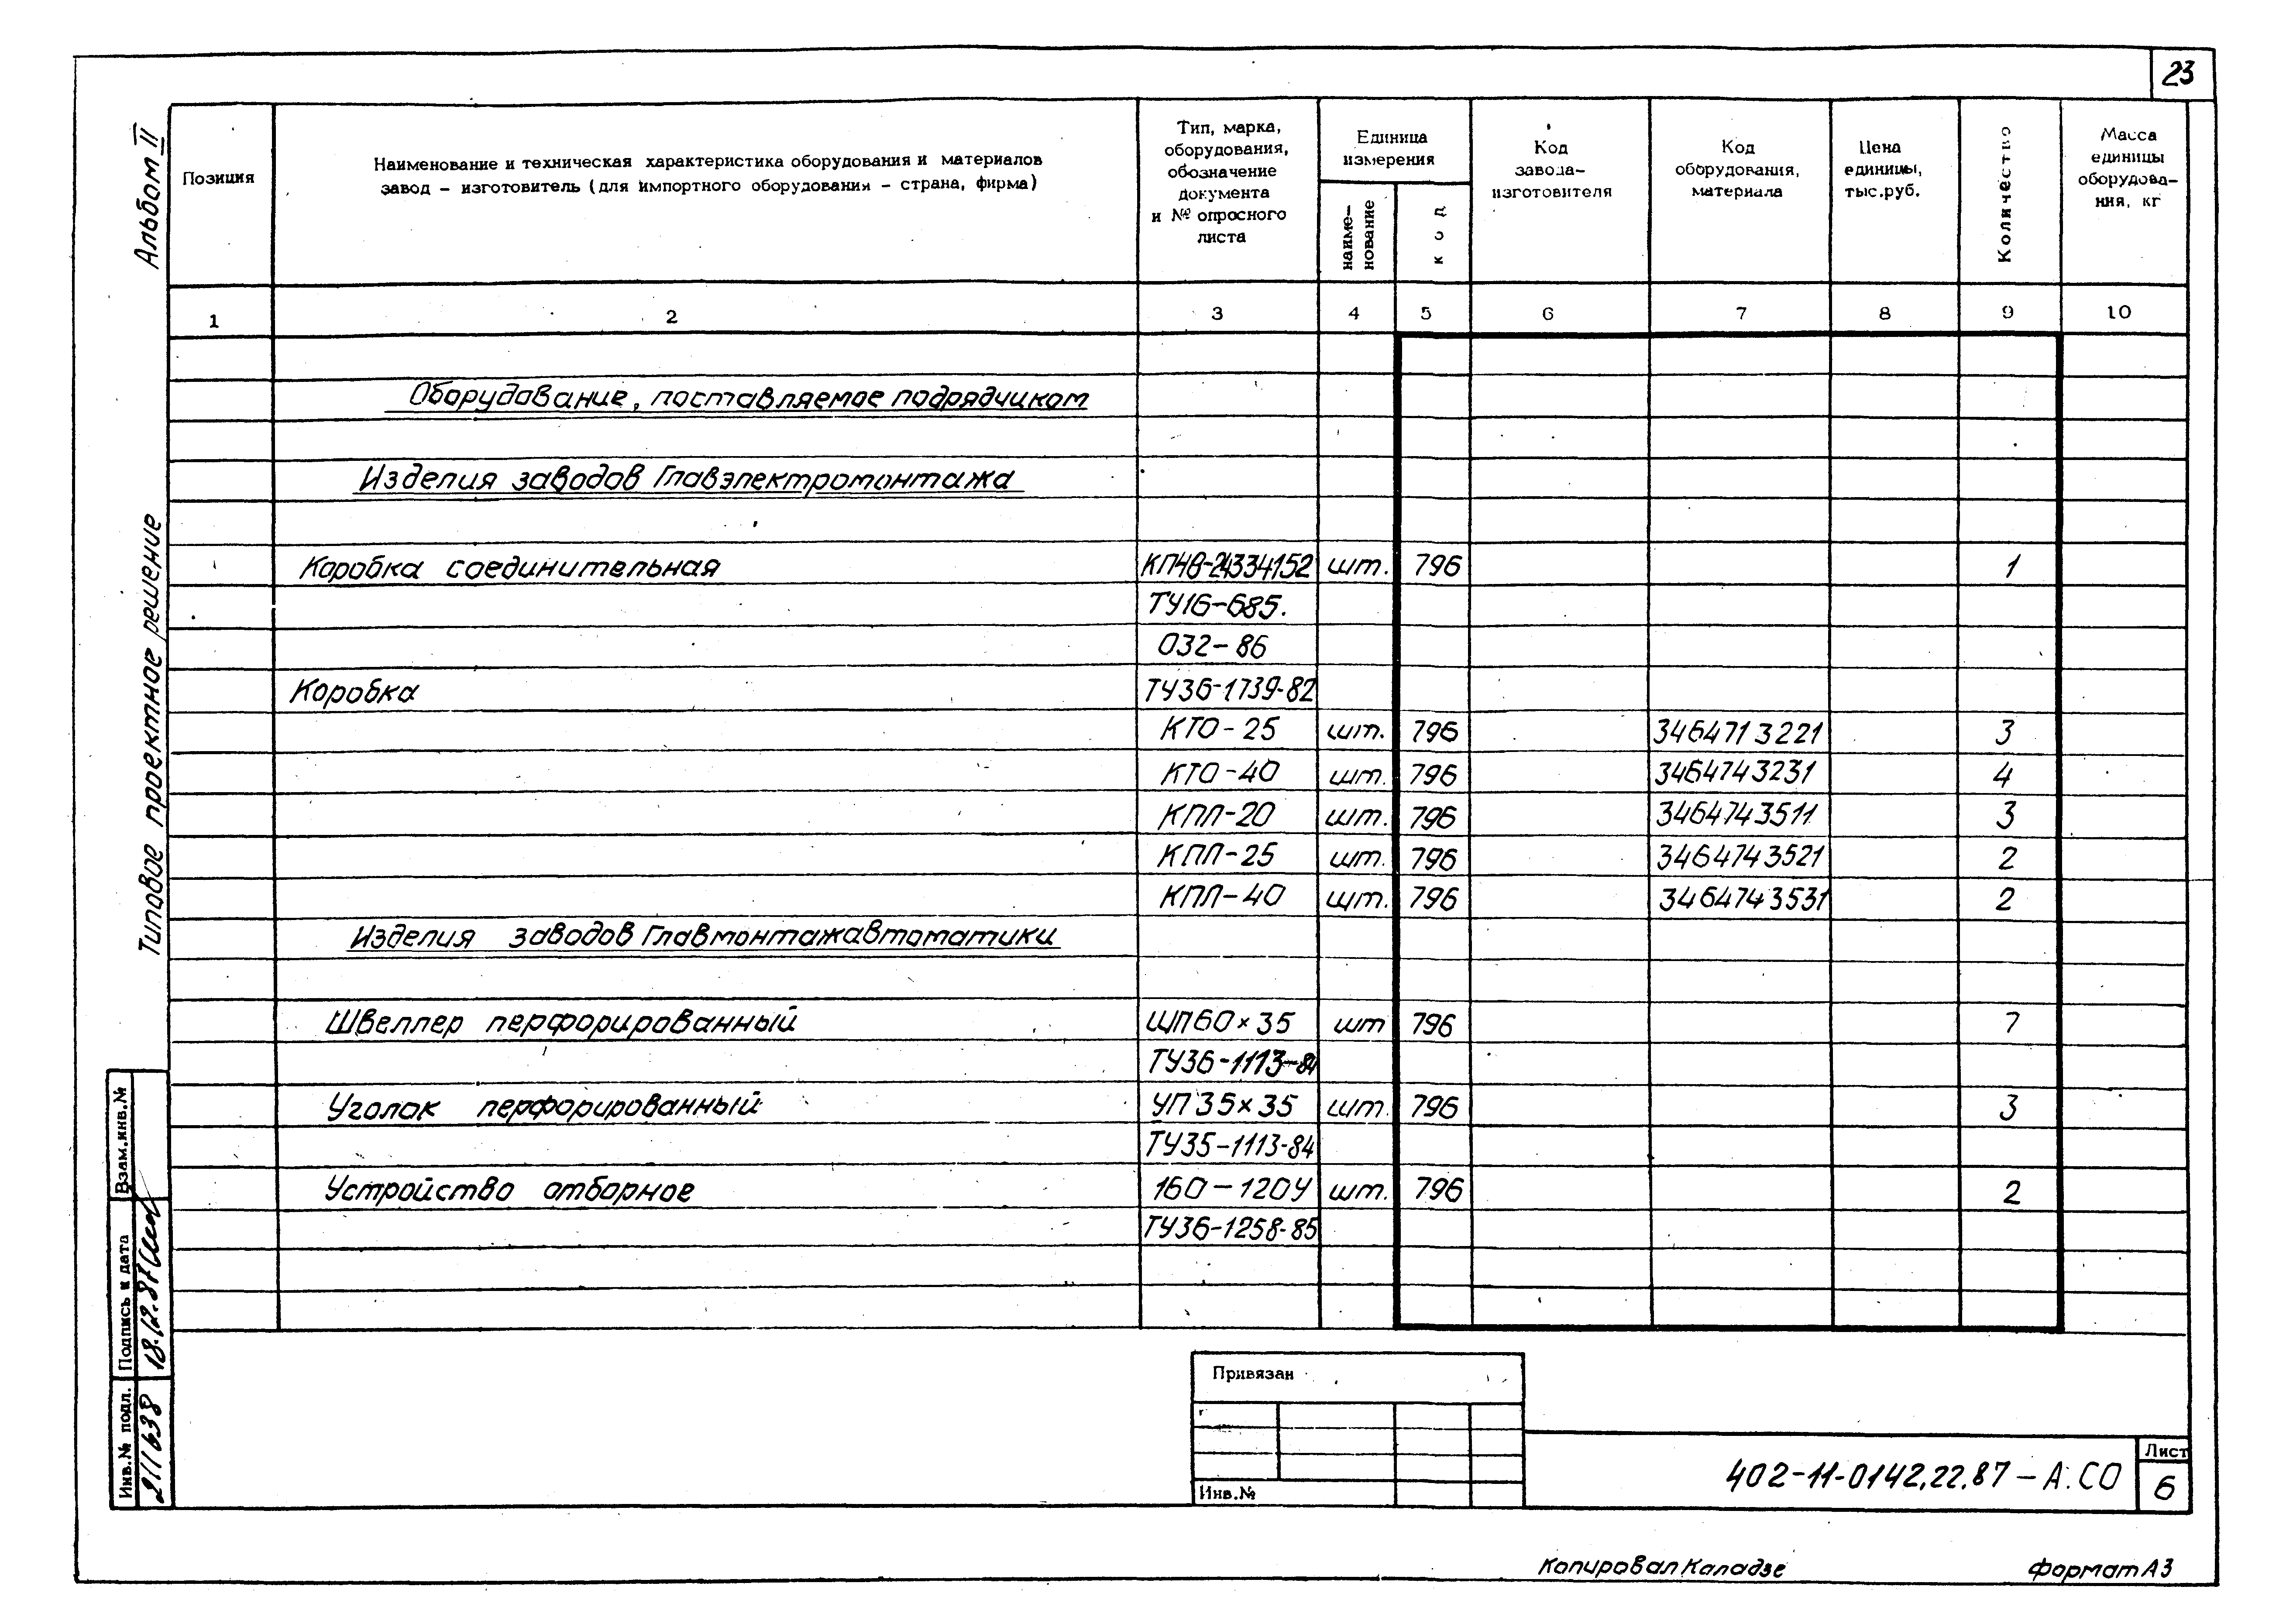 23
Альбом II
Типовое проектное решение
Позиция
Наименование и техническая характеристика оборудования и материалов
завод – изготовитель (для импортного оборудования – страна, фирма)
Тип, марка,
оборудования,
обозначение
документа
и № опросного
листа
Единица
измерения
наиме-
нование
код
Код
завода-
изготовителя
Код
оборудования,
материала
Цена
единицы,
тыс.руб.
Количество
Масса
единицы
оборудова-
ния, кг
1 2 3 4 5 6 7 8 9 10
Оборудование, поставляемое подрядчиком
Изделия заводов Главэлектромонтажа
Коробка соединительная КП48-24334152 шт. 796 1
ТУ16-685.
032-86
Коробка ТУ36-1739-82
КТО-25 шт. 796 3464713221 3
КТО-40 шт. 796 3464743231 4
КПЛ-20 шт. 796 3464743511 3
КПЛ-25 шт. 796 3464743521 2
КПЛ-40 шт. 796 3464743531 2
Изделия заводов Главмонтажавтоматики
Швеллер перфорированный ШП60×35 шт 796 7
ТУ36-1113-84
Уголок перфорированный УП35×35 шт. 796 3
ТУ35-1113-84
Устройство отборное 160-120У шт. 796 2
ТУ36-1258-85
Взам.инв.№
Подпись и дата
18.12.87
Инв.№ подл.
2111638
Привязан
Инв.№
402-11-0142.22.87-А.СО
Лист
6
Копировал Каладзе
формат А3